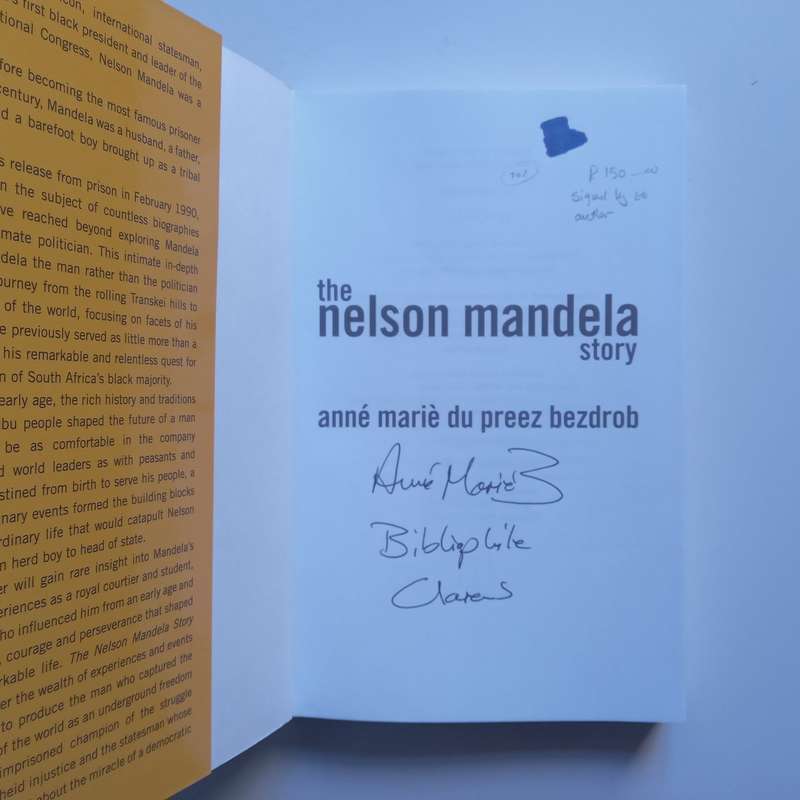 icon, international statesman,
's first black president and leader of the
tional Congress, Nelson Mandela was a
fore becoming the most famous prisoner
century, Mandela was a husband, a father,
d a barefoot boy brought up as a tribal
s release from prison in February 1990,
n the subject of countless biographies
ve reached beyond exploring Mandela
mate politician. This intimate in-depth
ndela the man rather than the politician
ourney from the rolling Transkei hills to
of the world, focusing on facets of his
e previously served as little more than a
his remarkable and relentless quest for
n of South Africa's black majority.
early age, the rich history and traditions
bu people shaped the future of a man
be as comfortable in the company
d world leaders as with peasants and
stined from birth to serve his people, a
nary events formed the building blocks
rdinary life that would catapult Nelson
n herd boy to head of state.
er will gain rare insight into Mandela's
eriences as a royal courtier and student,
ho influenced him from an early age and
, courage and perseverance that shaped
rkable life. The Nelson Mandela Story
er the wealth of experiences and events
to produce the man who captured the
of the world as an underground freedom
imprisoned champion of the struggle
heid injustice and the statesman whose
about the miracle of a democratic
R 150
signed by
author
the
nelson mandela
story
anné mariè du preez bezdrob
Anné Mariè B
Bibliophile
Clarens